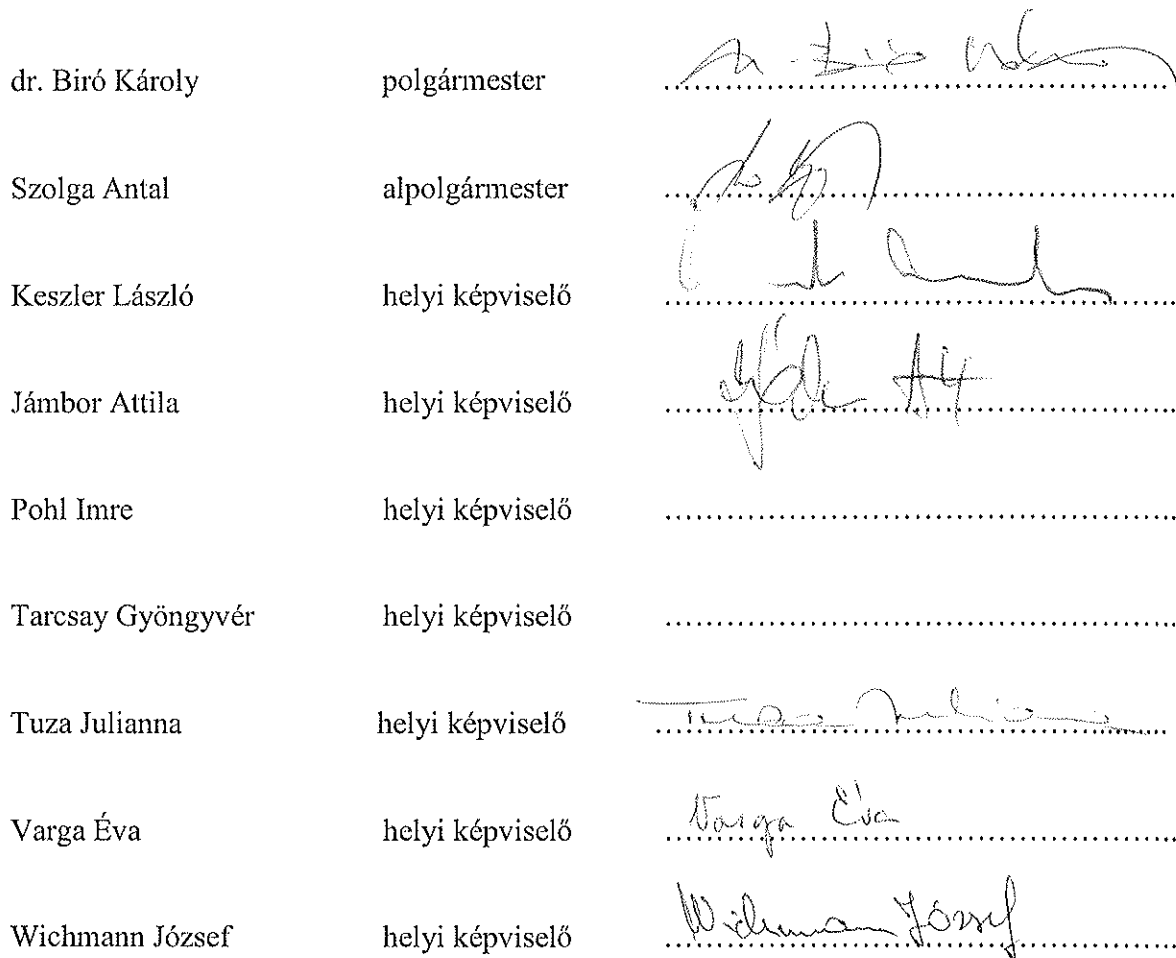 dr. Biró Károly polgármester dr. Biró
Szolga Antal alpolgármester
Keszler László helyi képviselő
Jámbor Attila helyi képviselő
Pohl Imre helyi képviselő
Tarcsay Gyöngyvér helyi képviselő
Tuza Julianna helyi képviselő Tuza Julianna
Varga Éva helyi képviselő Varga Éva
Wichmann József helyi képviselő Wichmann József